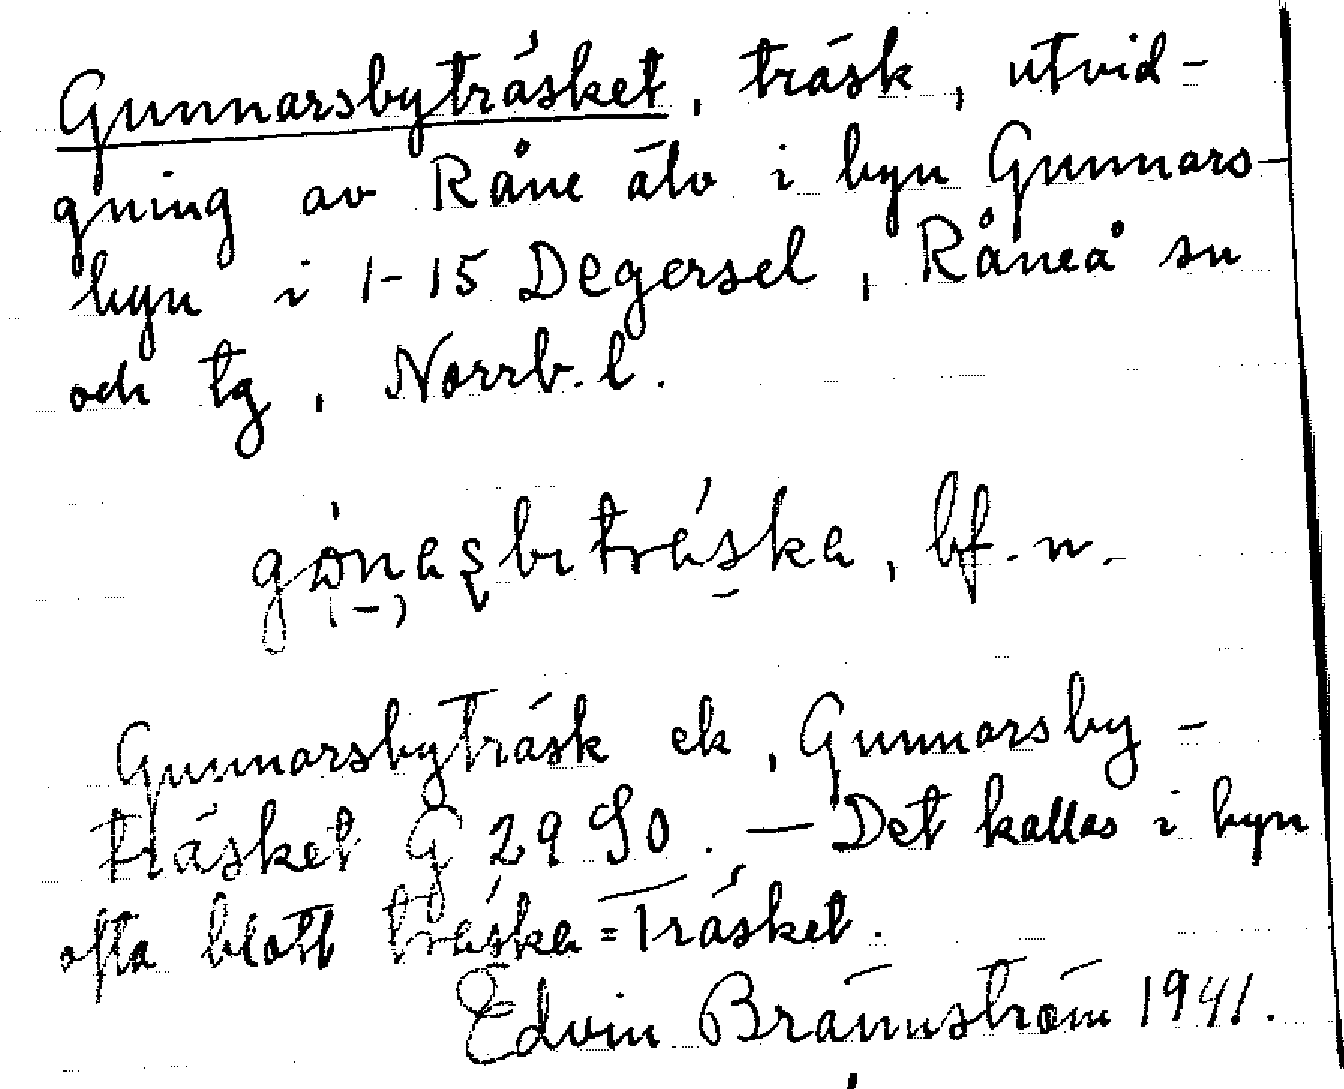 Gunnarsbyträsket, träsk, utvid-
gning av Råne älv i byn Gunnars-
byn i 1-15 Degersel, Råneå sn
och tg, Norrb. l.
bf. n.
Gunnarsbyträsk ek, Gunnarsby-
träsket G 29 SO. — Det kallas i byn
ofta blott träska = Träsket.
Edvin Brännström 1941.